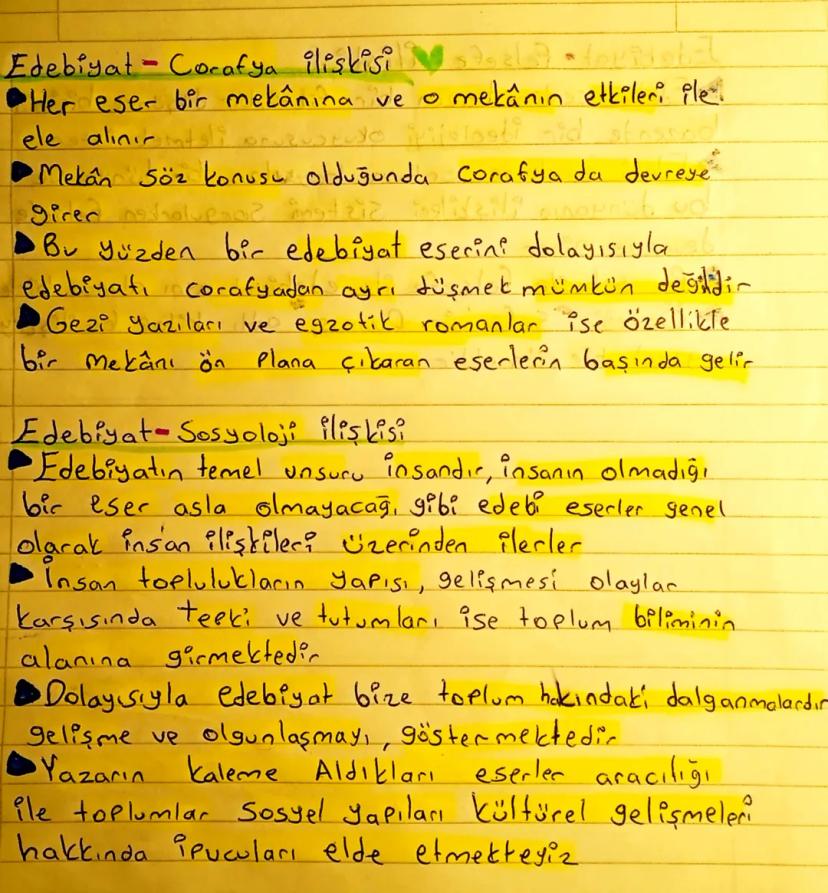 Edebiyat - Corafya ilişkisi
Her eser bir mekânına ve o mekânın etkileri ile
ele alınır
Mekân söz konusu olduğunda corafya da devreye
girer
Bu yüzden bir edebiyat eserini dolayısıyla
edebiyatı corafyadan ayrı düşmek mümkün değildir
Gezi yazıları ve egzotik romanlar ise özellikle
bir mekânı ön plana çıkaran eserlerin başında gelir
Edebiyat - Sosyoloji ilişkisi
Edebiyatın temel unsuru insandır, insanın olmadığı
bir eser asla olmayacağı gibi edebi eserler genel
olarak insan ilişkileri üzerinden ilerler
İnsan toplulukların yapısı, gelişmesi olaylar
karşısında teeki ve tutumları ise toplum biliminin
alanına girmektedir
Dolayısıyla edebiyat bize toplum hakındaki dalganmalardır
gelişme ve olgunlaşmayı, göstermektedir
Yazarın kaleme Aldıkları eserler aracılığı
ile toplumlar sosyal yapıları kültürel gelişmeleri
hakkında ipucuları elde etmekteyiz